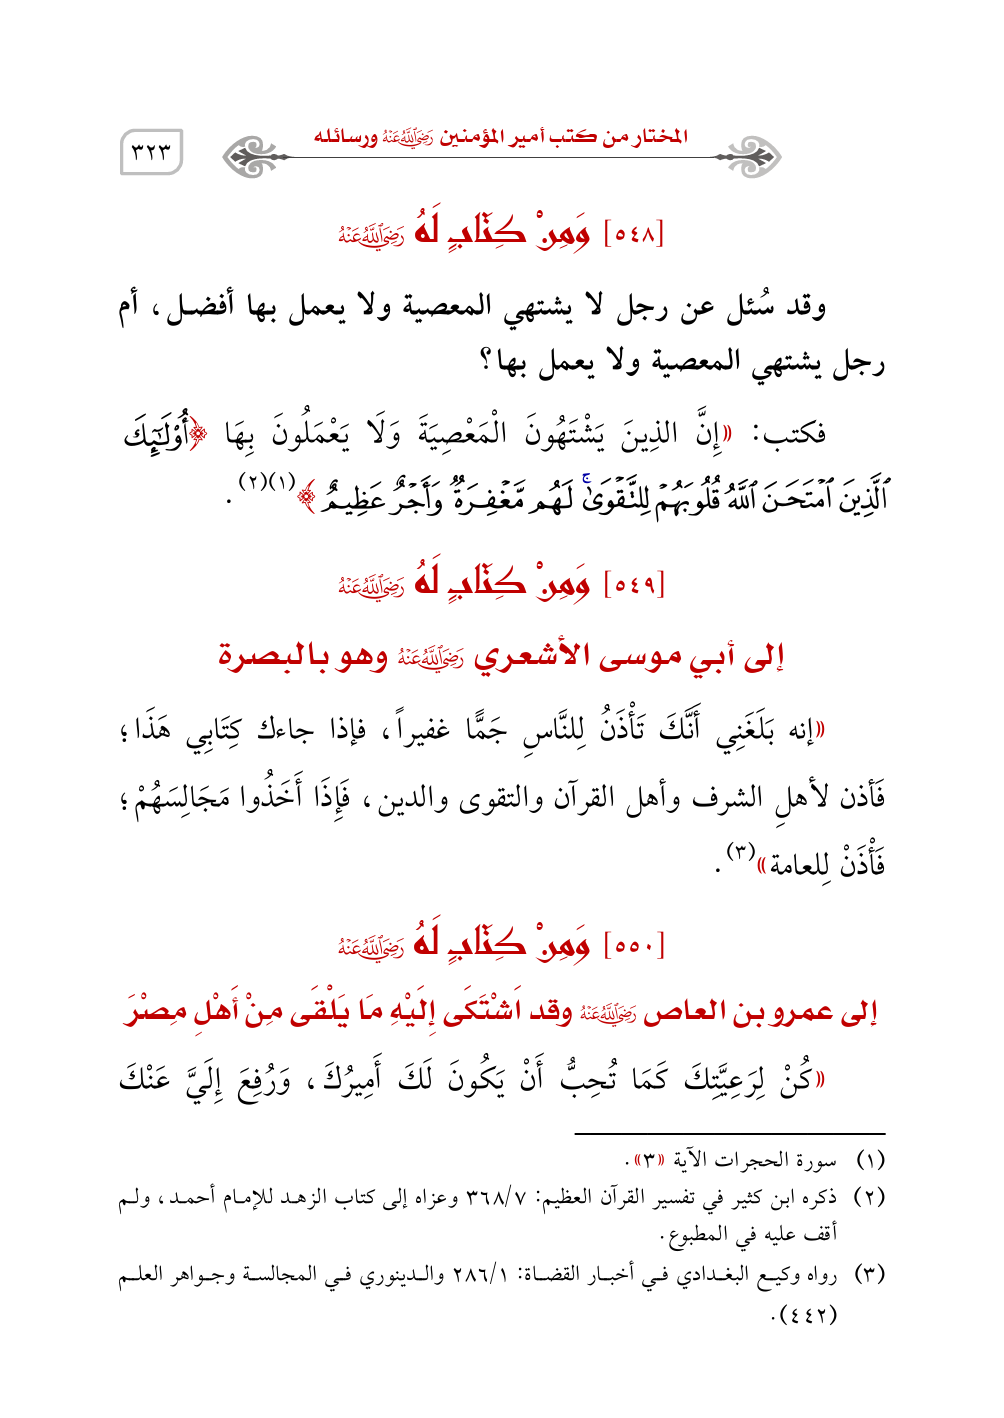 المختار من كتب أمير المؤمنين رَضِيَ اللَّهُ عَنْهُ ورسائله
٣٢٣
[٥٤٨] وَمِنْ كِتَابٍ لَهُ رَضِيَ اللَّهُ عَنْهُ
وقد سُئل عن رجل لا يشتهي المعصية ولا يعمل بها أفضل، أم
رجل يشتهي المعصية ولا يعمل بها؟
فكتب: «إِنَّ الذِينَ يَشْتَهُونَ الْمَعْصِيَةَ وَلَا يَعْمَلُونَ بِهَا ﴿أُوْلَٰٓئِكَ
ٱلَّذِينَ ٱمْتَحَنَ ٱللَّهُ قُلُوبَهُمْ لِلتَّقْوَىٰۚ لَهُم مَّغْفِرَةٌ وَأَجْرٌ عَظِيمٌ﴾(١)(٢).
[٥٤٩] وَمِنْ كِتَابٍ لَهُ رَضِيَ اللَّهُ عَنْهُ
إلى أبي موسى الأشعري رَضِيَ اللَّهُ عَنْهُ وهو بالبصرة
«إنه بَلَغَنِي أَنَّكَ تَأْذَنُ لِلنَّاسِ جَمًّا غفيراً، فإذا جاءك كِتَابِي هَذَا؛
فَأذن لأهلِ الشرف وأهل القرآن والتقوى والدين، فَإِذَا أَخَذُوا مَجَالِسَهُمْ؛
فَأْذَنْ لِلعامة»(٣).
[٥٥٠] وَمِنْ كِتَابٍ لَهُ رَضِيَ اللَّهُ عَنْهُ
إلى عمرو بن العاص رَضِيَ اللَّهُ عَنْهُ وقد اَشْتَكَى إِلَيْهِ مَا يَلْقَى مِنْ أَهْلِ مِصْرَ
«كُنْ لِرَعِيَّتِكَ كَمَا تُحِبُّ أَنْ يَكُونَ لَكَ أَمِيرُكَ، وَرُفِعَ إِلَيَّ عَنْكَ
(١) سورة الحجرات الآية «٣».
(٢) ذكره ابن كثير في تفسير القرآن العظيم: ٣٦٨/٧ وعزاه إلى كتاب الزهد للإمام أحمد، ولم
أقف عليه في المطبوع.
(٣) رواه وكيع البغدادي في أخبار القضاة: ٢٨٦/١ والدينوري في المجالسة وجواهر العلم
(٤٤٢).